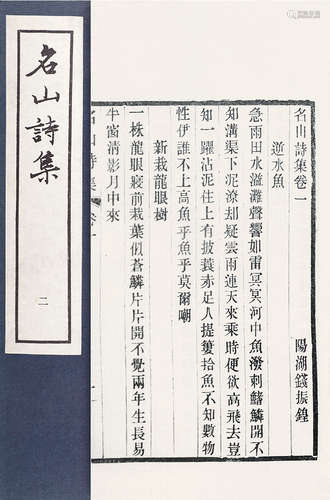 名山詩集卷一
陽湖錢振鍠
逆水魚
急雨田水溢灘聲響如雷冥冥河中魚潑剌鰭鱗開不
知溝渠下泥潦却疑雲雨連天來乘時便欲高飛去豈
知一躍沾泥住上有披蓑赤足人提簍拾魚不知數物
性伊誰不上高魚乎魚乎莫爾嘲
新栽龍眼樹
一株龍眼寢前栽葉似蒼鱗片片開不覺兩年生長易
半窗清影月中來
名山詩集
二